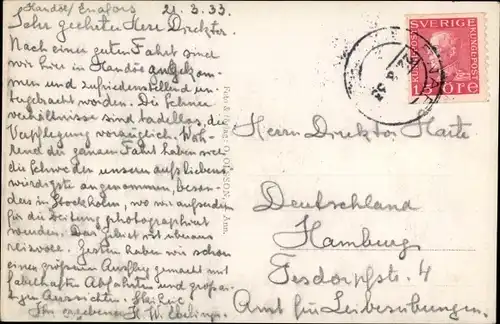 Handöl/Enafors 21.3.33.
Sehr geehrter Herr Direktor.
Nach einer guten Fahrt sind
wir hier in Handöl angekom-
men und zufriedenstellend un-
tergebracht worden. Die Schnee
verhältnisse sind tadellos, die
Verpflegung vorzüglich. Wäh-
rend der ganzen Fahrt haben sich
die Schweden unserer aufs liebens
würdigste angenommen, beson-
ders in Stockholm, wo wir außerdem
für die Zeitung photographiert
wurden. Das Gebiet ist überaus
reizvoll. Gestern haben wir schon
einen größeren Ausflug gemacht mit
fabelhaften Abfahrten und großar-
tigen Aussichten. Skiheil
Ihr ergebener H. W. Ebeling
OLOFSSON
SVERIGE
KUNGL. POST
KUNGL. POST
15 ÖRE
Herrn Direktor Harte
Deutschland
Hamburg
Tesdorpfstr. 4
Amt für Leibesübungen.